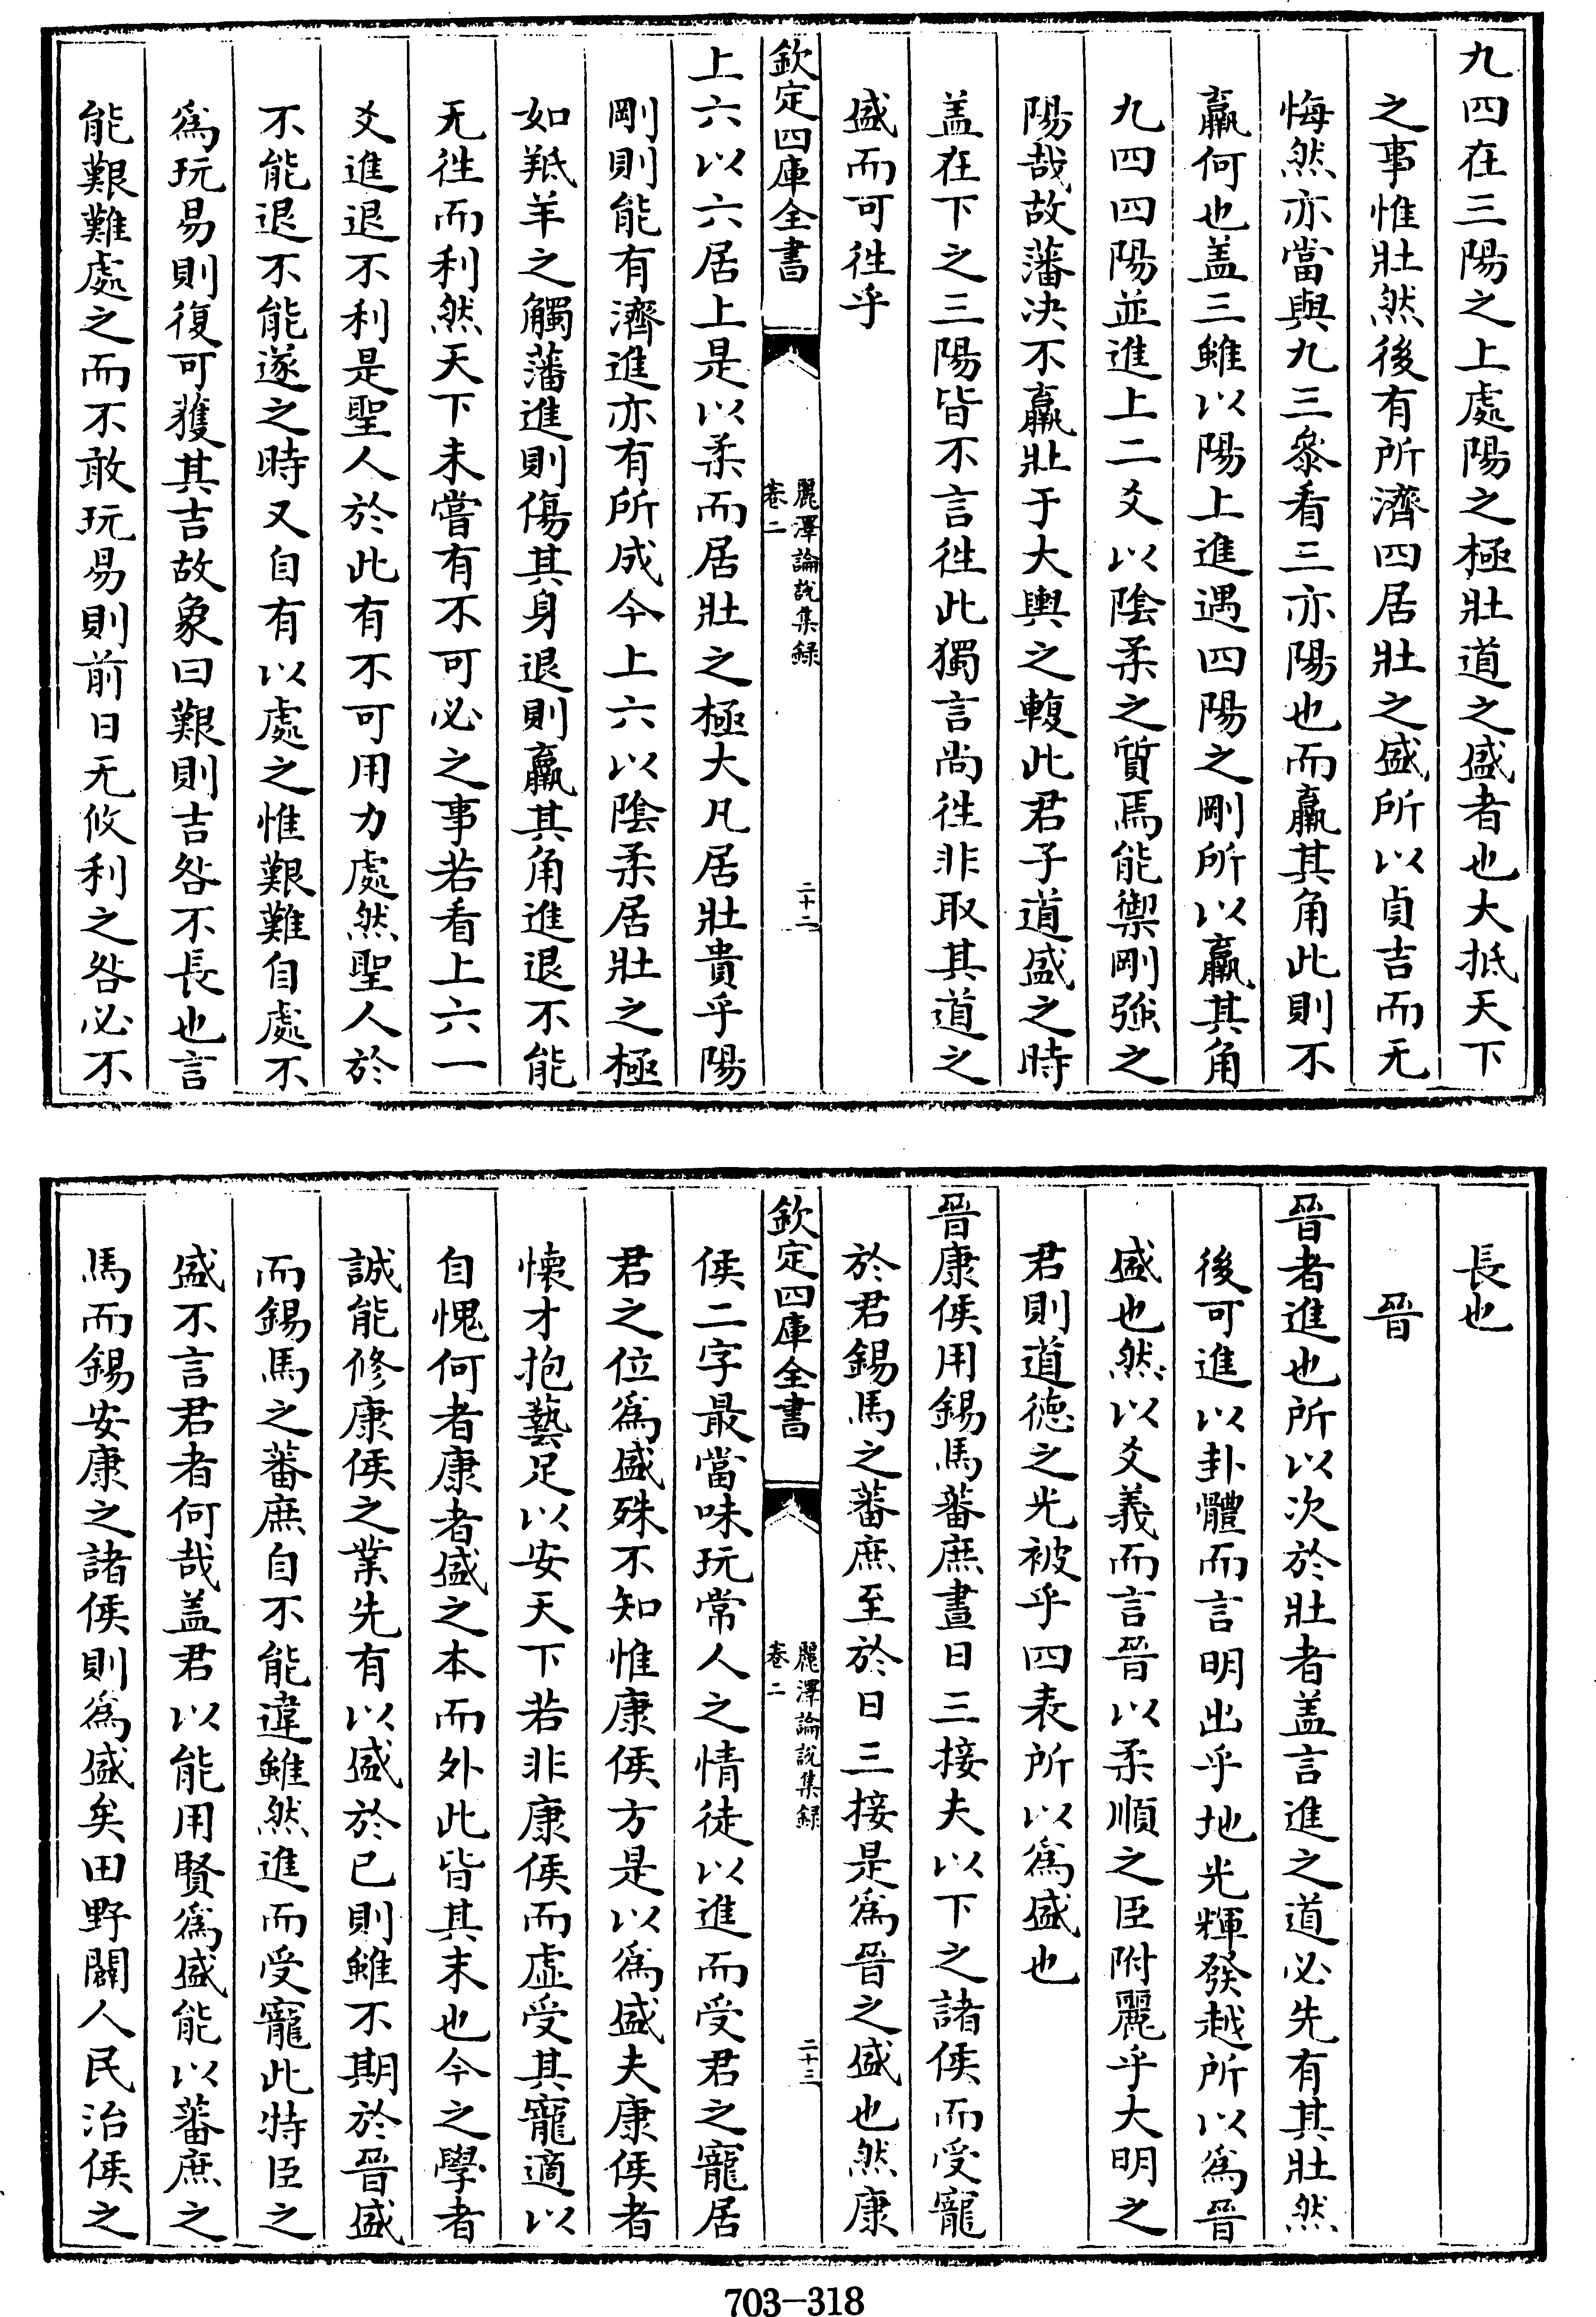 九四在三陽之上處陽之極壯道之盛者也大抵天下
之事惟壯然後有所濟四居壯之盛所以貞吉而无
悔然亦當與九三叅看三亦陽也而羸其角此則不
羸何也盖三雖以陽上進遇四陽之剛所以羸其角
九四四陽並進上二爻以隂柔之質焉能禦剛強之
陽哉故藩决不羸壯于大輿之輹此君子道盛之時
盖在下之三陽皆不言徃此獨言尚徃非取其道之
盛而可徃乎
欽定四庫全書
麗澤論說集録
卷二
二十二
上六以六居上是以柔而居壯之極大凡居壯貴乎陽
剛則能有濟進亦有所成今上六以隂柔居壯之極
如羝羊之觸藩進則傷其身退則羸其角進退不能
无徃而利然天下未嘗有不可必之事若看上六一
爻進退不利是聖人於此有不可用力處然聖人於
不能退不能遂之時又自有以處之惟艱難自處不
為玩易則復可獲其吉故象曰艱則吉咎不長也言
能艱難處之而不敢玩易則前日无攸利之咎必不
長也
晉
晉者進也所以次於壯者盖言進之道必先有其壯然
後可進以卦體而言明出乎地光輝發越所以為晉
盛也然以爻義而言晉以柔順之臣附麗乎大明之
君則道德之光被乎四表所以為盛也
晉康侯用錫馬蕃庶晝日三接夫以下之諸侯而受寵
於君錫馬之蕃庶至於日三接是為晉之盛也然康
欽定四庫全書
麗澤論說集録
卷二
二十三
侯二字最當味玩常人之情徒以進而受君之寵居
君之位為盛殊不知惟康侯方是以為盛夫康侯者
懐才抱藝足以安天下若非康侯而虛受其寵適以
自愧何者康者盛之本而外此皆其末也今之學者
誠能修康侯之業先有以盛於已則雖不期於晉盛
而錫馬之蕃庶自不能違雖然進而受寵此特臣之
盛不言君者何哉盖君以能用賢為盛能以蕃庶之
馬而錫安康之諸侯則為盛矣田野闢人民治侯之
703-318